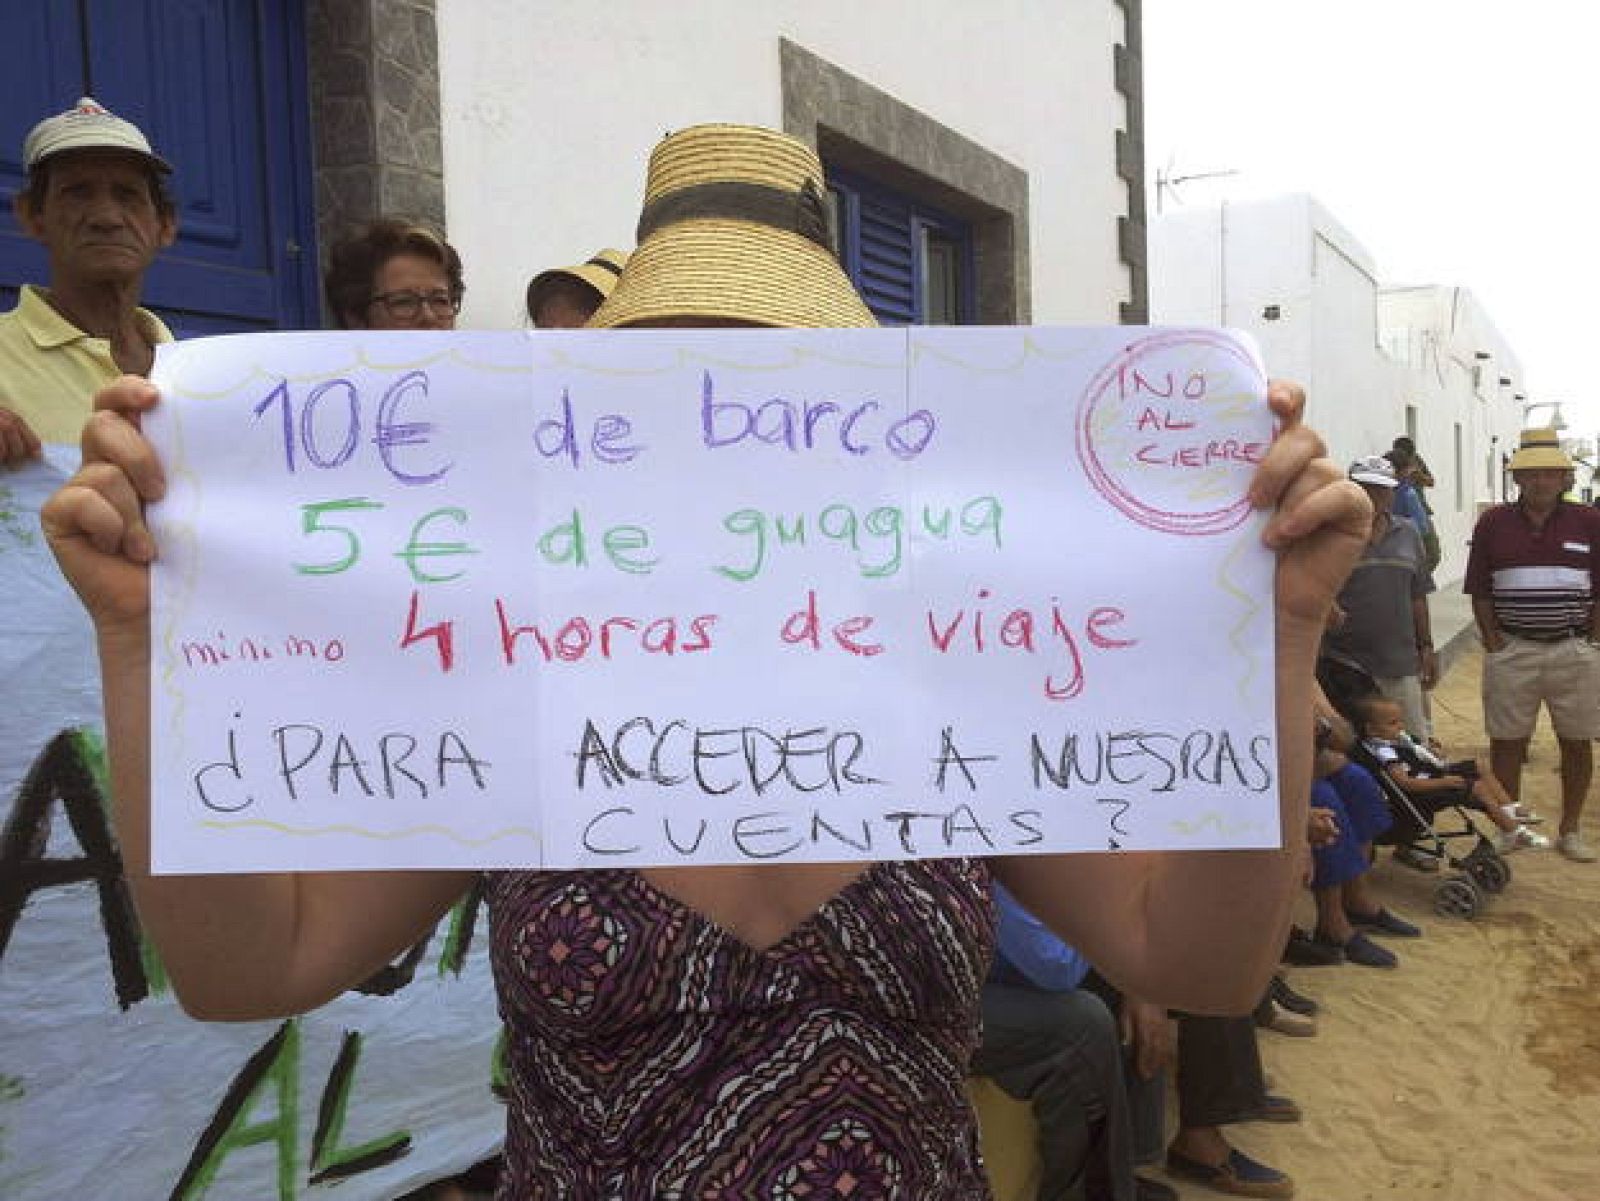 10€ de barco
5€ de guagua
minimo 4 horas de viaje
¿PARA ACCEDER A NUESRAS
CUENTAS?
¡NO
AL
CIERRE
AL